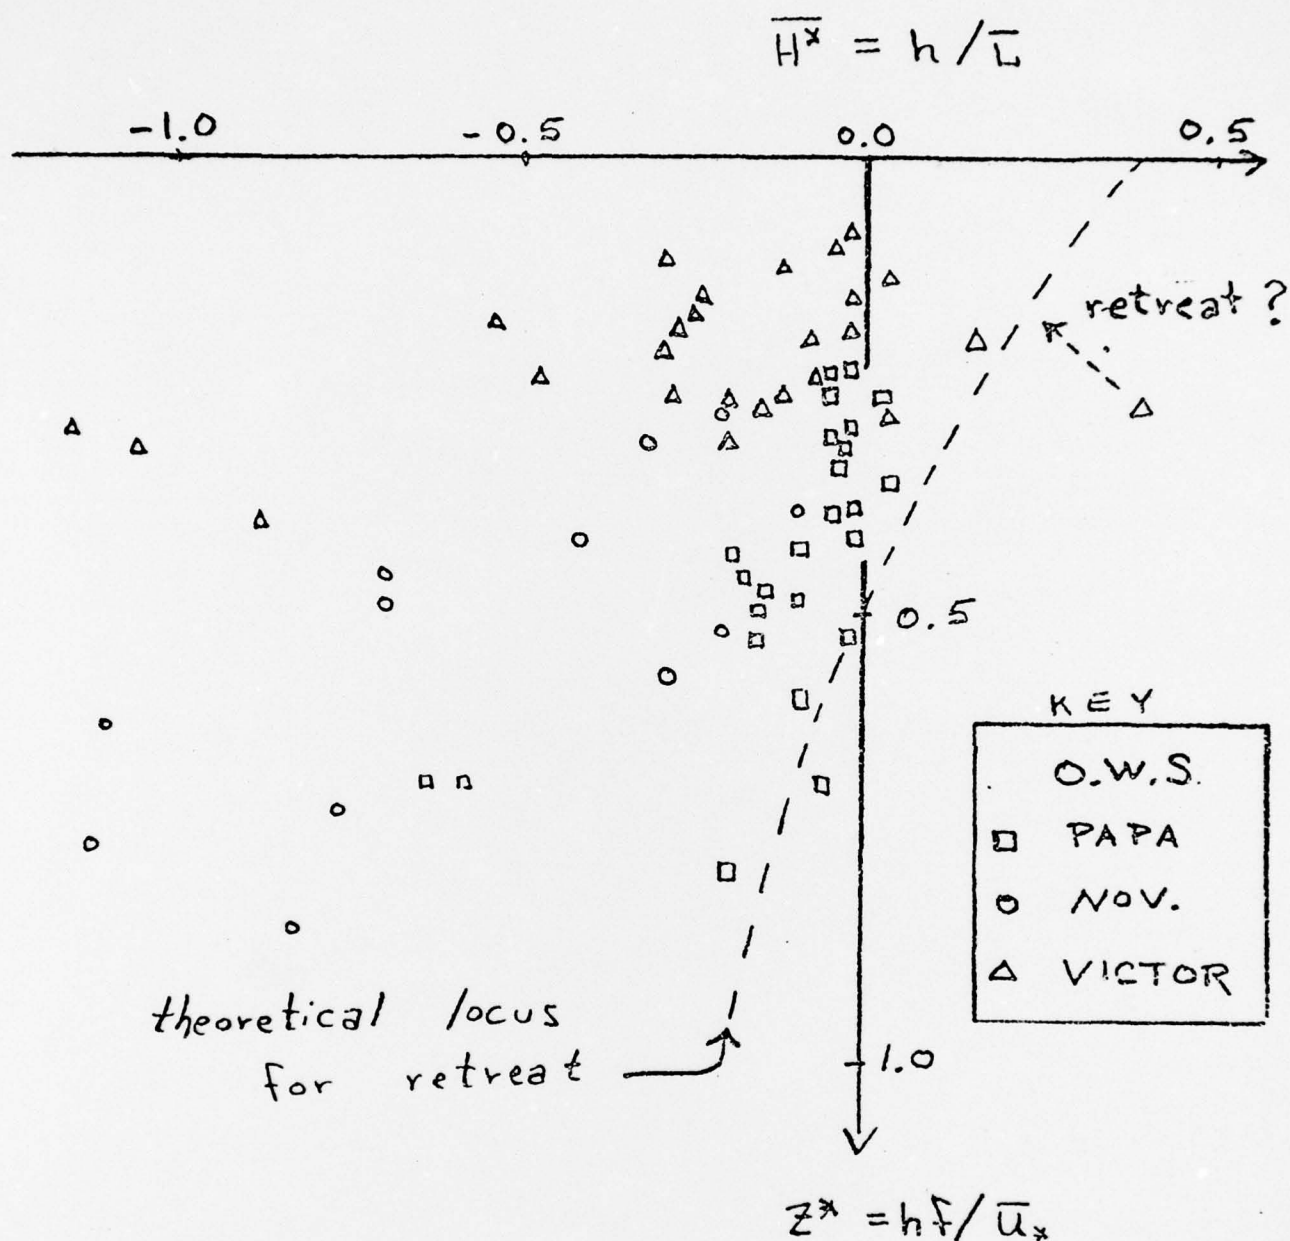 H* = h/L
-1.0 -0.5 0.0 0.5
retreat?
0.5
KEY
O.W.S.
PAPA
NOV.
VICTOR
theoretical locus
for retreat
1.0
Z* = hf/u*